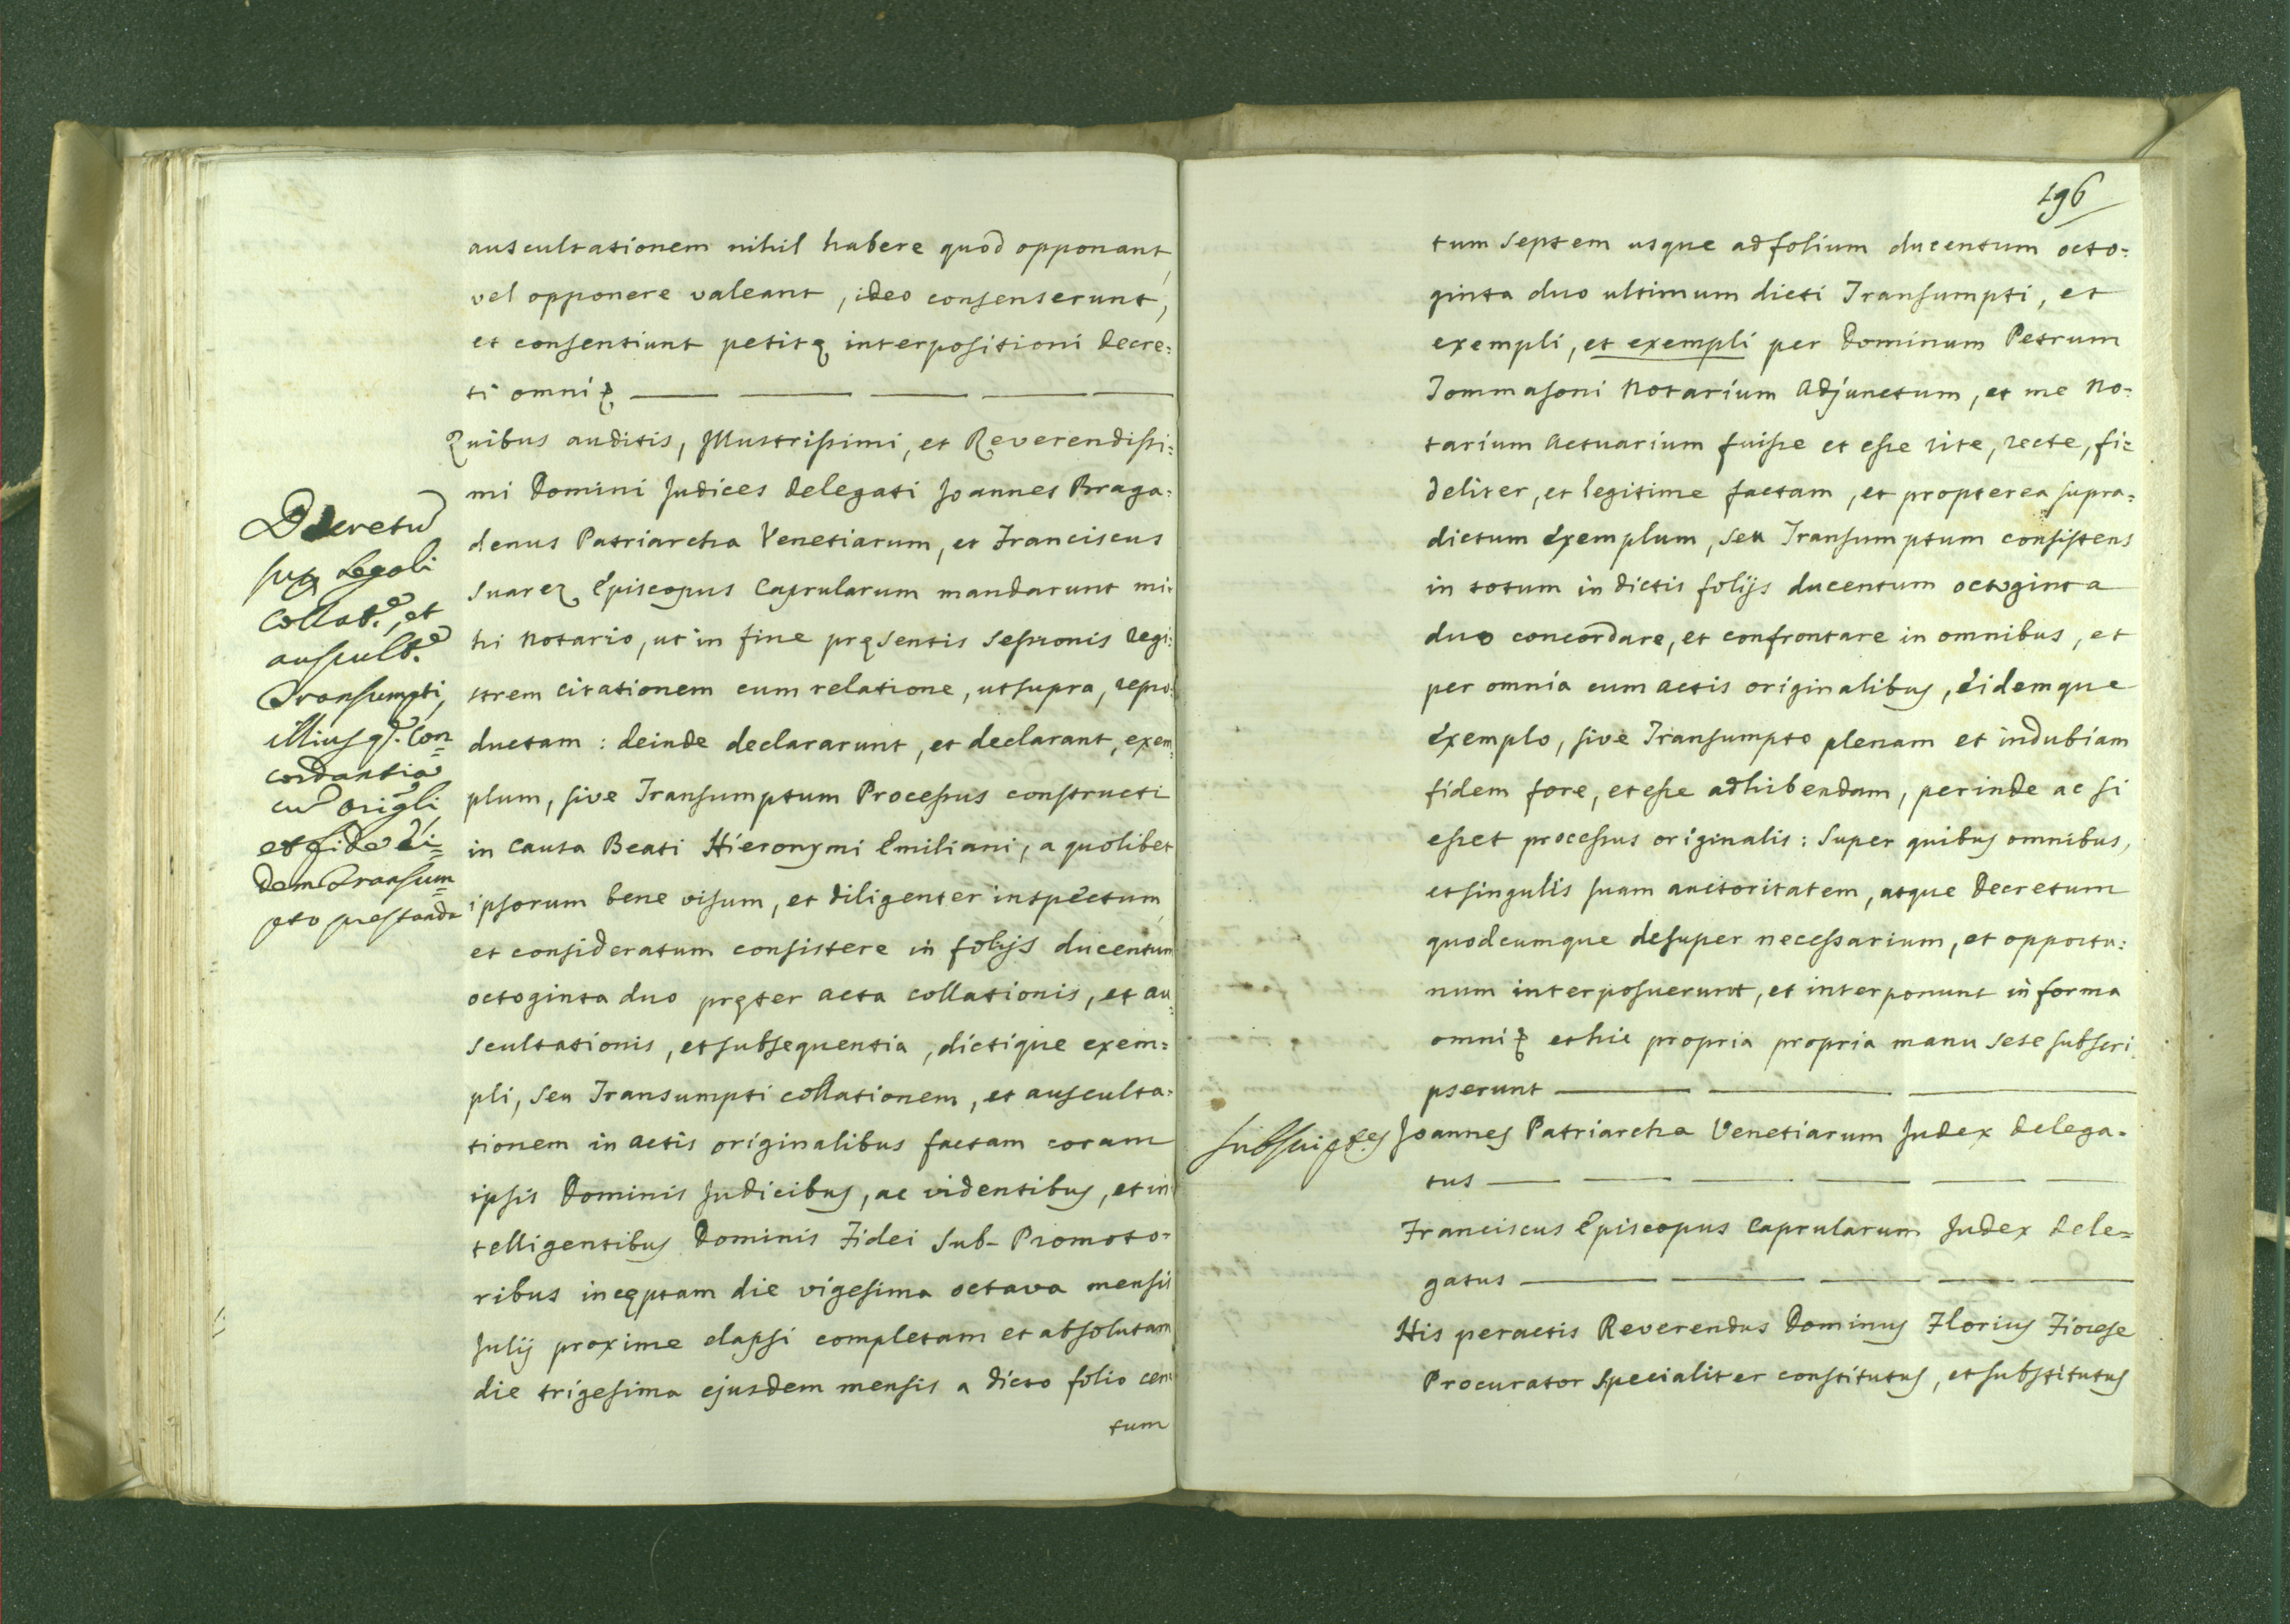 auscultationem nihil habere quod opponant,
vel opponere valeant, ideo consenserunt,
et consentiunt petitę interpositioni Decre:
ti omni
Quibus auditis, Illustrissimi, et Reverendissi:
mi Domini Judices Delegati Joannes Braga:
denus Patriarcha Venetiarum, et Franciscus
Suarez Episcopus Caprularum mandarunt mi:
hi Notario, ut in fine pręsentis Sessionis regi:
strem citationem cum relatione, ut supra, repro:
ductam : deinde declararunt, et declarant, exem:
plum, sive Transumptum Processus constructi
in Causa Beati Hieronymi Emiliani, a quolibet
ipsorum bene visum, et diligenter inspectum,
et consideratum consistere in folijs ducentum
octoginta duo pręter acta collationis, et au:
scultationis, et subsequentia, dictique exem:
pli, seu Transumpti collationem, et ausculta:
tionem in actis originalibus factam coram
ipsis Dominis Judicibus, ac videntibus, et in
telligentibus Dominis Fidei Sub-Promoto:
ribus incęptam die vigesima octava mensis
Julij proxime elapsi completam et absolutam
die trigesima ejusdem mensis a dicto folio cen:
tum
Decretu
Legali
Collat.e, et
auscult.e
Transumpti,
illiusq. Con
cordantia
cu origli
et fide ei=
dem Transum
pto prestanda
196
tum septem usque ad folium ducentum octo:
ginta duo ultimum dicti Transumpti, et
exempli, et exempli per Dominum Petrum
Tommasoni Notarium Adjunctum, et me No:
tarium Actuarium fuisse et esse rite, recte, fi:
deliter, et legitime factam, et propterea supra:
dictum Exemplum, seu Transumptum consistens
in totum in dictis folijs ducentum octoginta
duo concordare, et confrontare in omnibus, et
per omnia cum actis originalibus, Eidemque
Exemplo, sive Transumpto plenam et indubiam
fidem fore, et esse adhibendam, perinde ac si
esset processus originalis : Super quibus omnibus,
et singulis suam auctoritatem, atque Decretum
quodcumque desuper necessarium, et opportu:
num interposuerunt, et interponunt in forma
omni et hic propria propria manu sese subscri
pserunt
Subscript.es
Joannes Patriarcha Venetiarum Judex Delega:
tus
Franciscus Episcopus Caprularum Judex Dele=
gatus
His peractis Reverendus Dominus Florius Fiorese
Procurator Specialiter constitutus, et substitutus